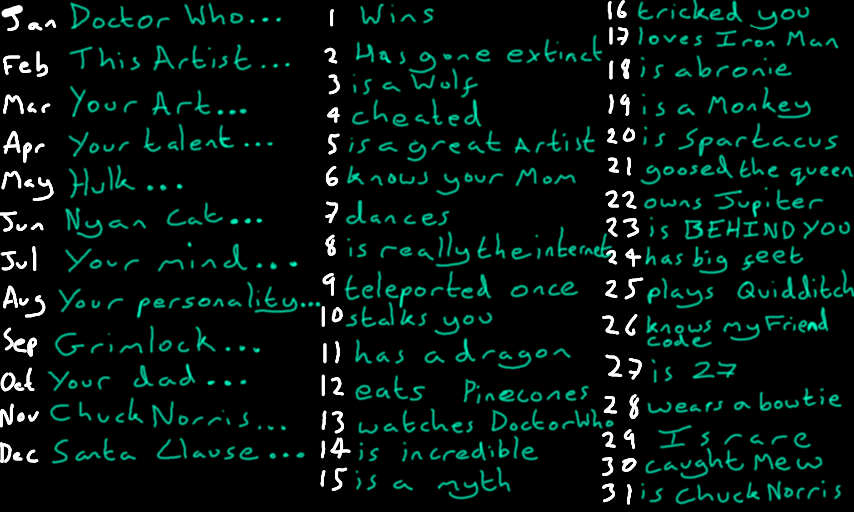 Jan Doctor Who...
Feb This Artist...
Mar Your Art...
Apr Your talent...
May Hulk...
Jun Nyan Cat...
Jul Your mind...
Aug Your personality...
Sep Grimlock...
Oct Your dad...
Nov Chuck Norris...
Dec Santa Clause...
1 Wins
2 Has gone extinct
3 is a Wolf
4 cheated
5 is a great Artist
6 knows your Mom
7 dances
8 is really the internet
9 teleported once
10 stalks you
11 has a dragon
12 eats Pinecones
13 watches Doctor Who
14 is incredible
15 is a myth
16 tricked you
17 loves Iron Man
18 is a bronie
19 is a Monkey
20 is Spartacus
21 goosed the queen
22 owns Jupiter
23 is BEHIND YOU
24 has big feet
25 plays Quidditch
26 knows my Friend
code
27 is 27
28 wears a bowtie
29 Is rare
30 caught Mew
31 is Chuck Norris